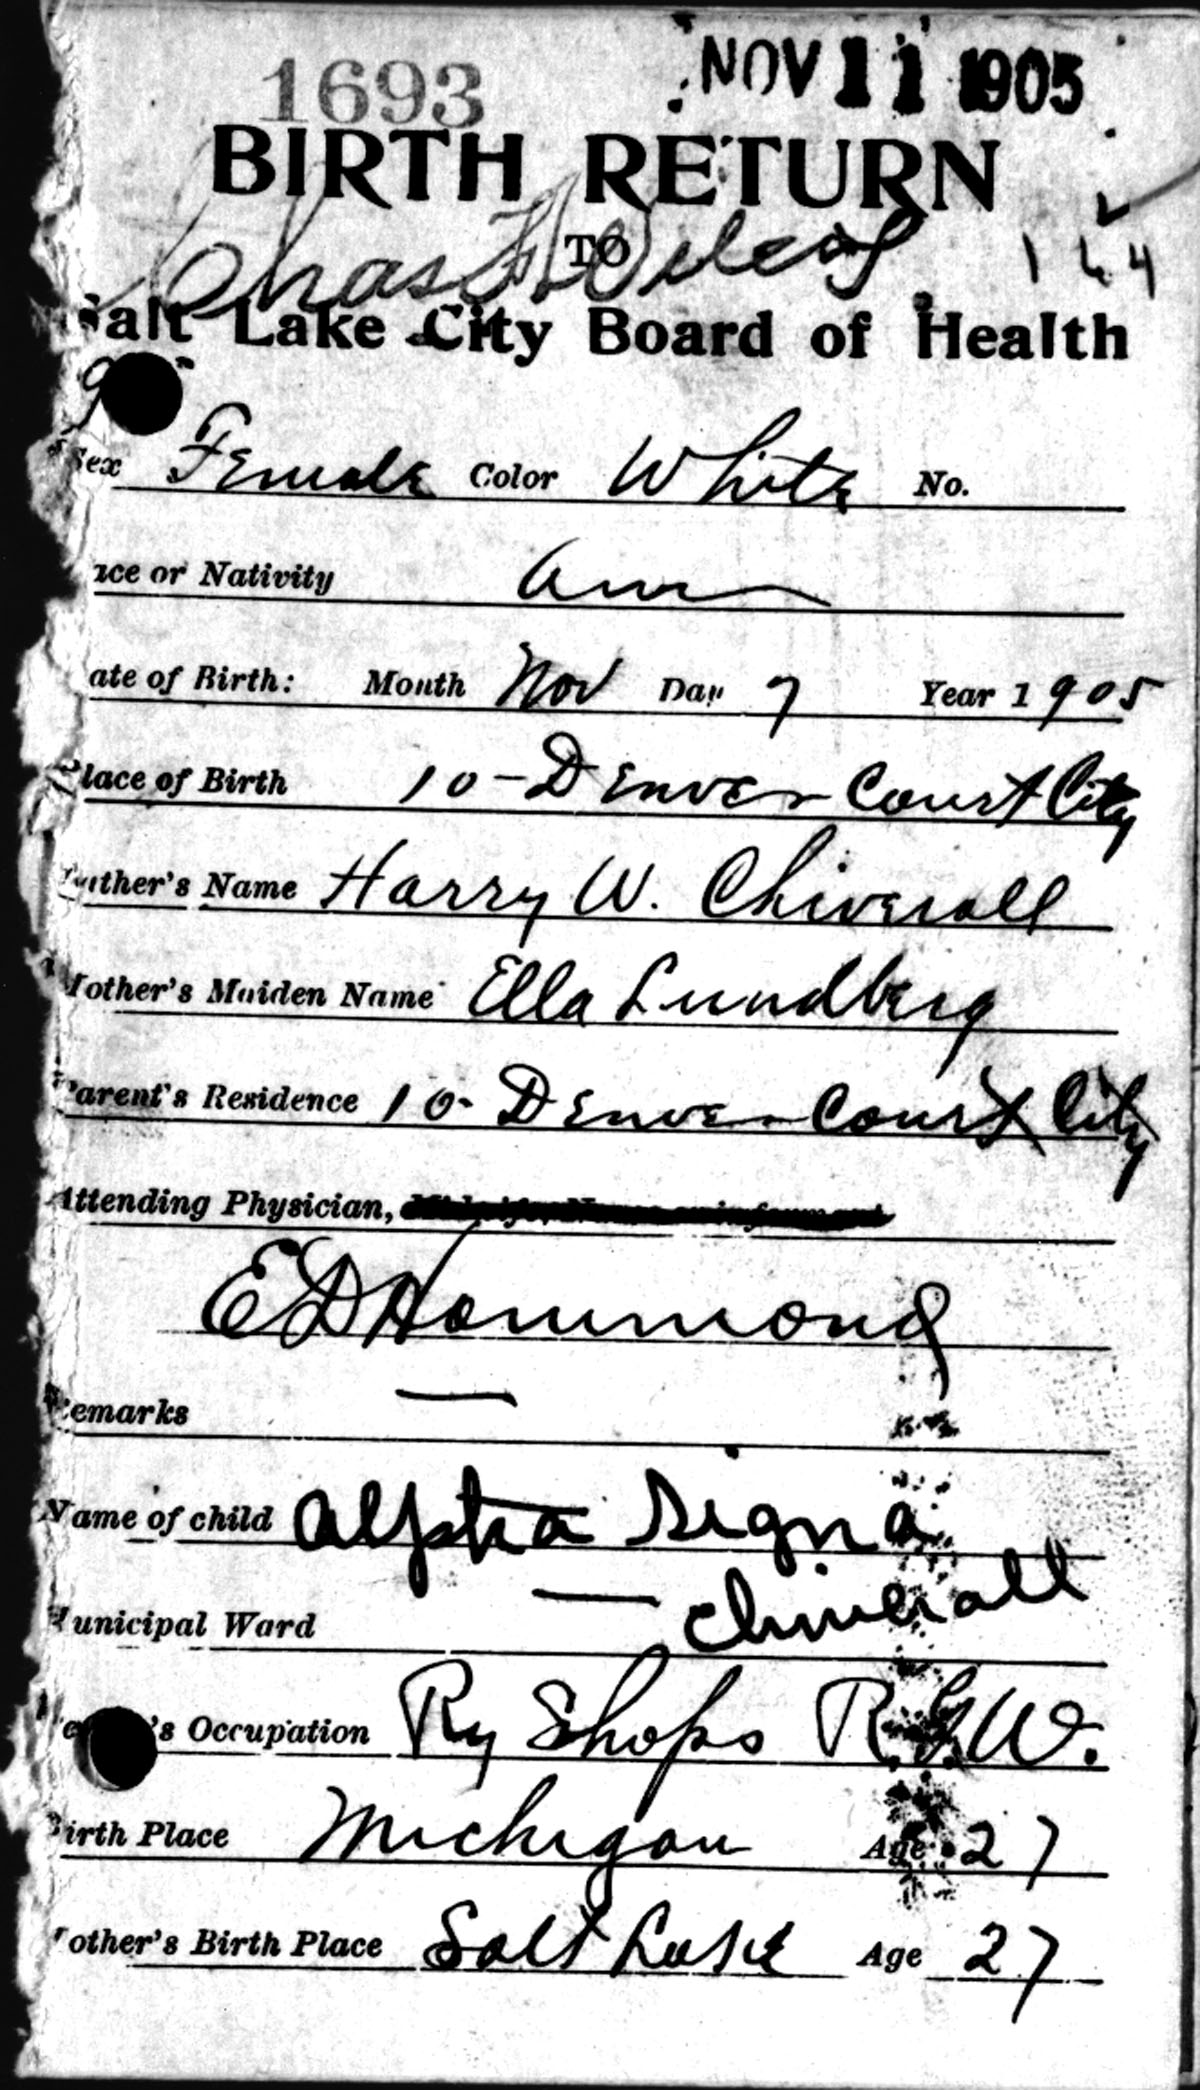 1693
NOV 11 1905
BIRTH RETURN
TO
Chas
144
Salt Lake City Board of Health
Sex Female Color White No.
ace or Nativity Am
ate of Birth: Month Nov Day 7 Year 1905
Place of Birth 10 - Denver Court City
Father's Name Harry W. Chiverall
Mother's Maiden Name Ella Lundberg
Parent's Residence 10 - Denver Court City
Attending Physician,
E D Hammond
Remarks —
Name of child Alpha Signa
Chiverall
Municipal Ward —
's Occupation Ry Shops R.G.W.
Birth Place Michigan Age 27
other's Birth Place Salt Lake Age 27